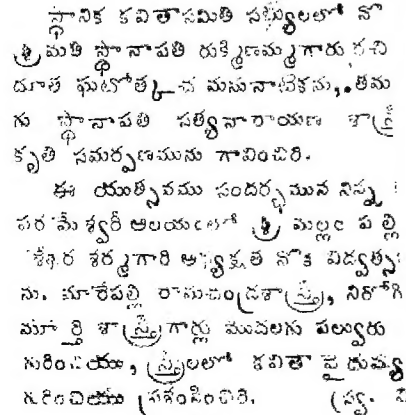 స్థానిక కవితాసమితి సభ్యులలో నొ
శ్రీమతి స్థానాపతి రుక్మిణమ్మగారు రచి
దూత ఘటోత్కచ మనునాటికను, తమ
గు స్థానాపతి సత్యనారాయణ శాస్త్రి
కృతి సమర్పణమును గావించిరి.
ఈ యుత్సవము సందర్భమున నిన్న
పరమేశ్వరీ ఆలయంలో శ్రీ మల్లం పల్లి
శర్మగారి అధ్యక్షత నొక విద్వత్స
ను. మారేపల్లి రామచంద్రశాస్త్రి,
మూర్తి శాస్త్రిగార్లు మొదలగు పల్వురు
గురించియు, స్త్రీలలో కవితా వైదుష్య
గురించియు ప్రశంసించిరి. (స్వ.